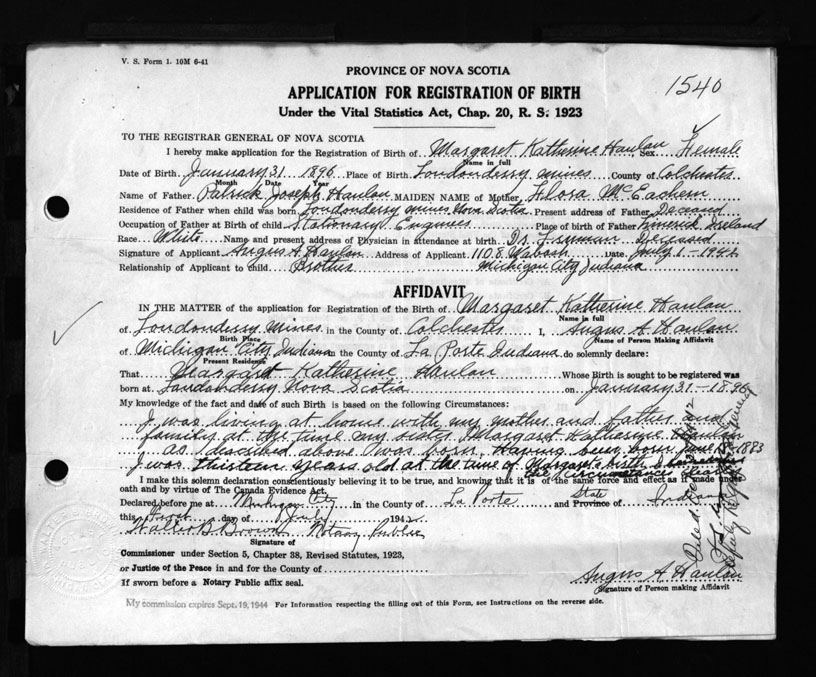 V. S. Form 1. 10M 6-41
PROVINCE OF NOVA SCOTIA
1540
APPLICATION FOR REGISTRATION OF BIRTH
Under the Vital Statistics Act, Chap. 20, R. S. 1923
TO THE REGISTRAR GENERAL OF NOVA SCOTIA
I hereby make application for the Registration of Birth of Margaret Katherine Hanlan Sex Female
Name in full
Date of Birth January 31 1896 Place of Birth Londonderry mines County of Colchester
Month Date Year
Name of Father Patrick Joseph Hanlan MAIDEN NAME of Mother Flora McEachern
Residence of Father when child was born Londonderry mines Nova Scotia Present address of Father Deceased
Occupation of Father at Birth of child Stationary Engineer Place of birth of Father Limerick Ireland
Race White Name and present address of Physician in attendance at birth Dr. Deceased
Signature of Applicant Angus A Hanlan Address of Applicant 1108 Wabash Date July 1-1942
Relationship of Applicant to child Brother Michigan City Indiana
AFFIDAVIT
IN THE MATTER of the application for Registration of the Birth of Margaret Katherine Hanlan
Name in full
of Londonderry Mines in the County of Colchester I, Angus A. Hanlan
Birth Place Name of Person Making Affidavit
of Michigan City Indiana in the County of La Porte Indiana do solemnly declare:
Present Residence
That Margaret Katherine Hanlan Whose Birth is sought to be registered was
born at Londonderry Nova Scotia on January 31-1896
My knowledge of the fact and date of such Birth is based on the following Circumstances:
I was living at home with my mother and father and
family at the time my sister Margaret Katherine Hanlan
as described above was born, Having been born June 1883
I was thirteen years old at the time of Margaret's birth & remember
the circumstances clearly
I make this solemn declaration conscientiously believing it to be true, and knowing that it is of the same force and effect as if made under
oath and by virtue of The Canada Evidence Act.
Declared before me at Michigan City in the County of La Porte State and Province of Indiana
this First day of July 1942
Walter B Brown Notary Public
Signature of
Commissioner under Section 5, Chapter 38, Revised Statutes, 1923,
or Justice of the Peace in and for the County of
If sworn before a Notary Public affix seal.
Angus A Hanlan
Signature of Person making Affidavit
My commission expires Sept. 19, 1944 For Information respecting the filling out of this Form, see Instructions on the reverse side.